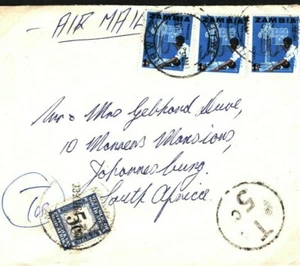 - AIR MAIL
ZAMBIA ZAMBIA ZAMBIA
Mr & Mrs Gebhard Suve,
10 Manners Mansions,
Johannesburg.
South Africa
T
5c
5c